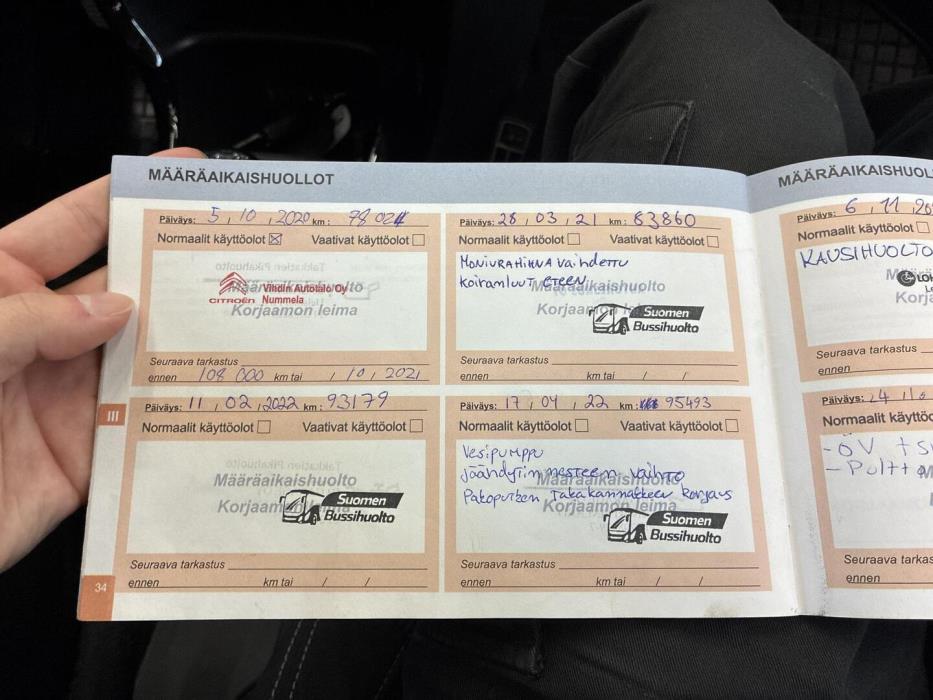 MÄÄRÄAIKAISHUOLLOT
Päiväys: 5 , 10 , 2020 km : 78 024
Normaalit käyttöolot ☒ Vaativat käyttöolot ☐
Määräaikaishuolto
Korjaamon leima
CITROËN
Vihdin Autotalo Oy
Nummela
Seuraava tarkastus
ennen 108 000 km tai / 10 , 2021
Päiväys: 28 , 03 , 21 km : 83860
Normaalit käyttöolot ☐ Vaativat käyttöolot ☐
MONIURAHIHNA vaihdettu
koiranluut eteen
Määräaikaishuolto
Korjaamon leima
Suomen
Bussihuolto
Seuraava tarkastus
ennen km tai / /
III
Päiväys: 11 , 02 , 2022 km : 93179
Normaalit käyttöolot ☐ Vaativat käyttöolot ☐
Määräaikaishuolto
Korjaamon leima
Suomen
Bussihuolto
Seuraava tarkastus
ennen km tai / /
34
Päiväys: 17 , 04 , 22 km : 95493
Normaalit käyttöolot ☐ Vaativat käyttöolot ☐
Vesipumppu
jäähdytinnesteen vaihto
Pakoputken takakannakkeen korjaus
Määräaikaishuolto
Korjaamon leima
Suomen
Bussihuolto
Seuraava tarkastus
ennen km tai / /
MÄÄRÄAIKAISHUOL
Päiväys: 6 , 11 , 20
Normaalit käyttöolot ☐
KAUSIHUOLTO
Korja
Seuraava tarkastus
ennen
Päiväys:
Normaalit käyttöo
- ÖV + S
- Poltto
Korja
Seuraava tarkas
ennen